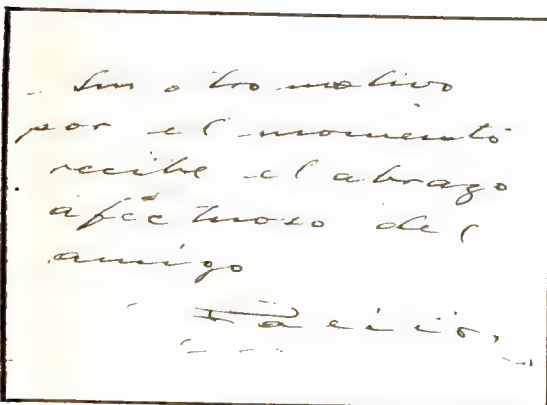 Sin otro motivo
por el momento
recibe el abrazo
afectuoso del
amigo